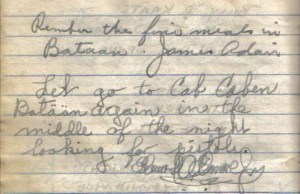 Rember the fine meals in
Bataan. James Adair
Let go to Cab Caben
Bataan again in the
middle of the night
looking for pistols